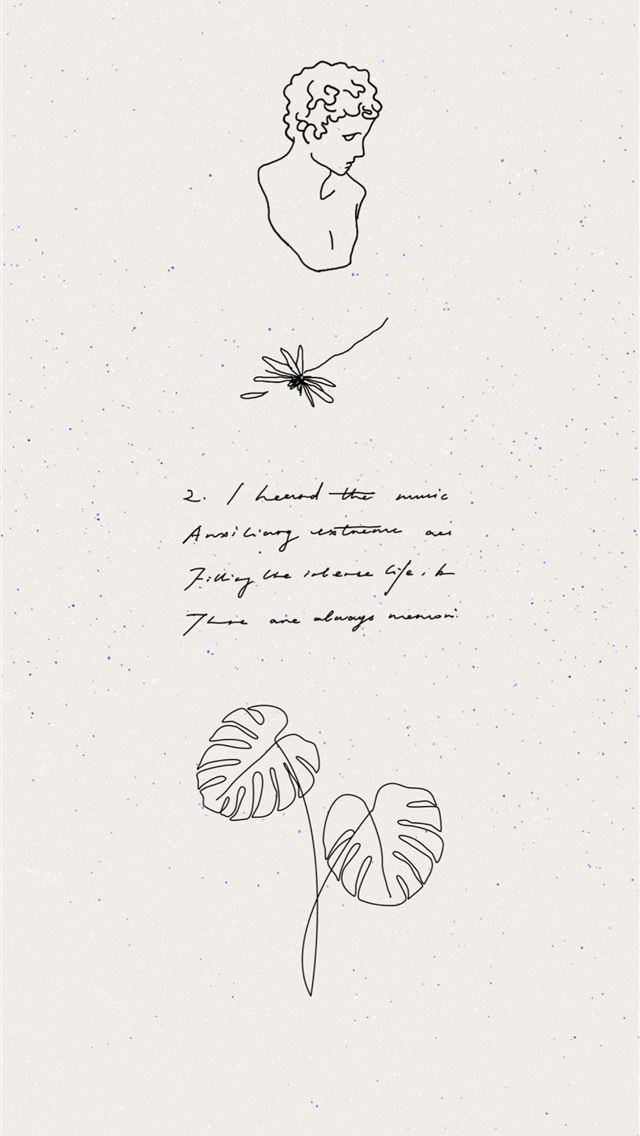 2. I heard the music
Auxiliary extreme
Filling the intense life.
There are always memori